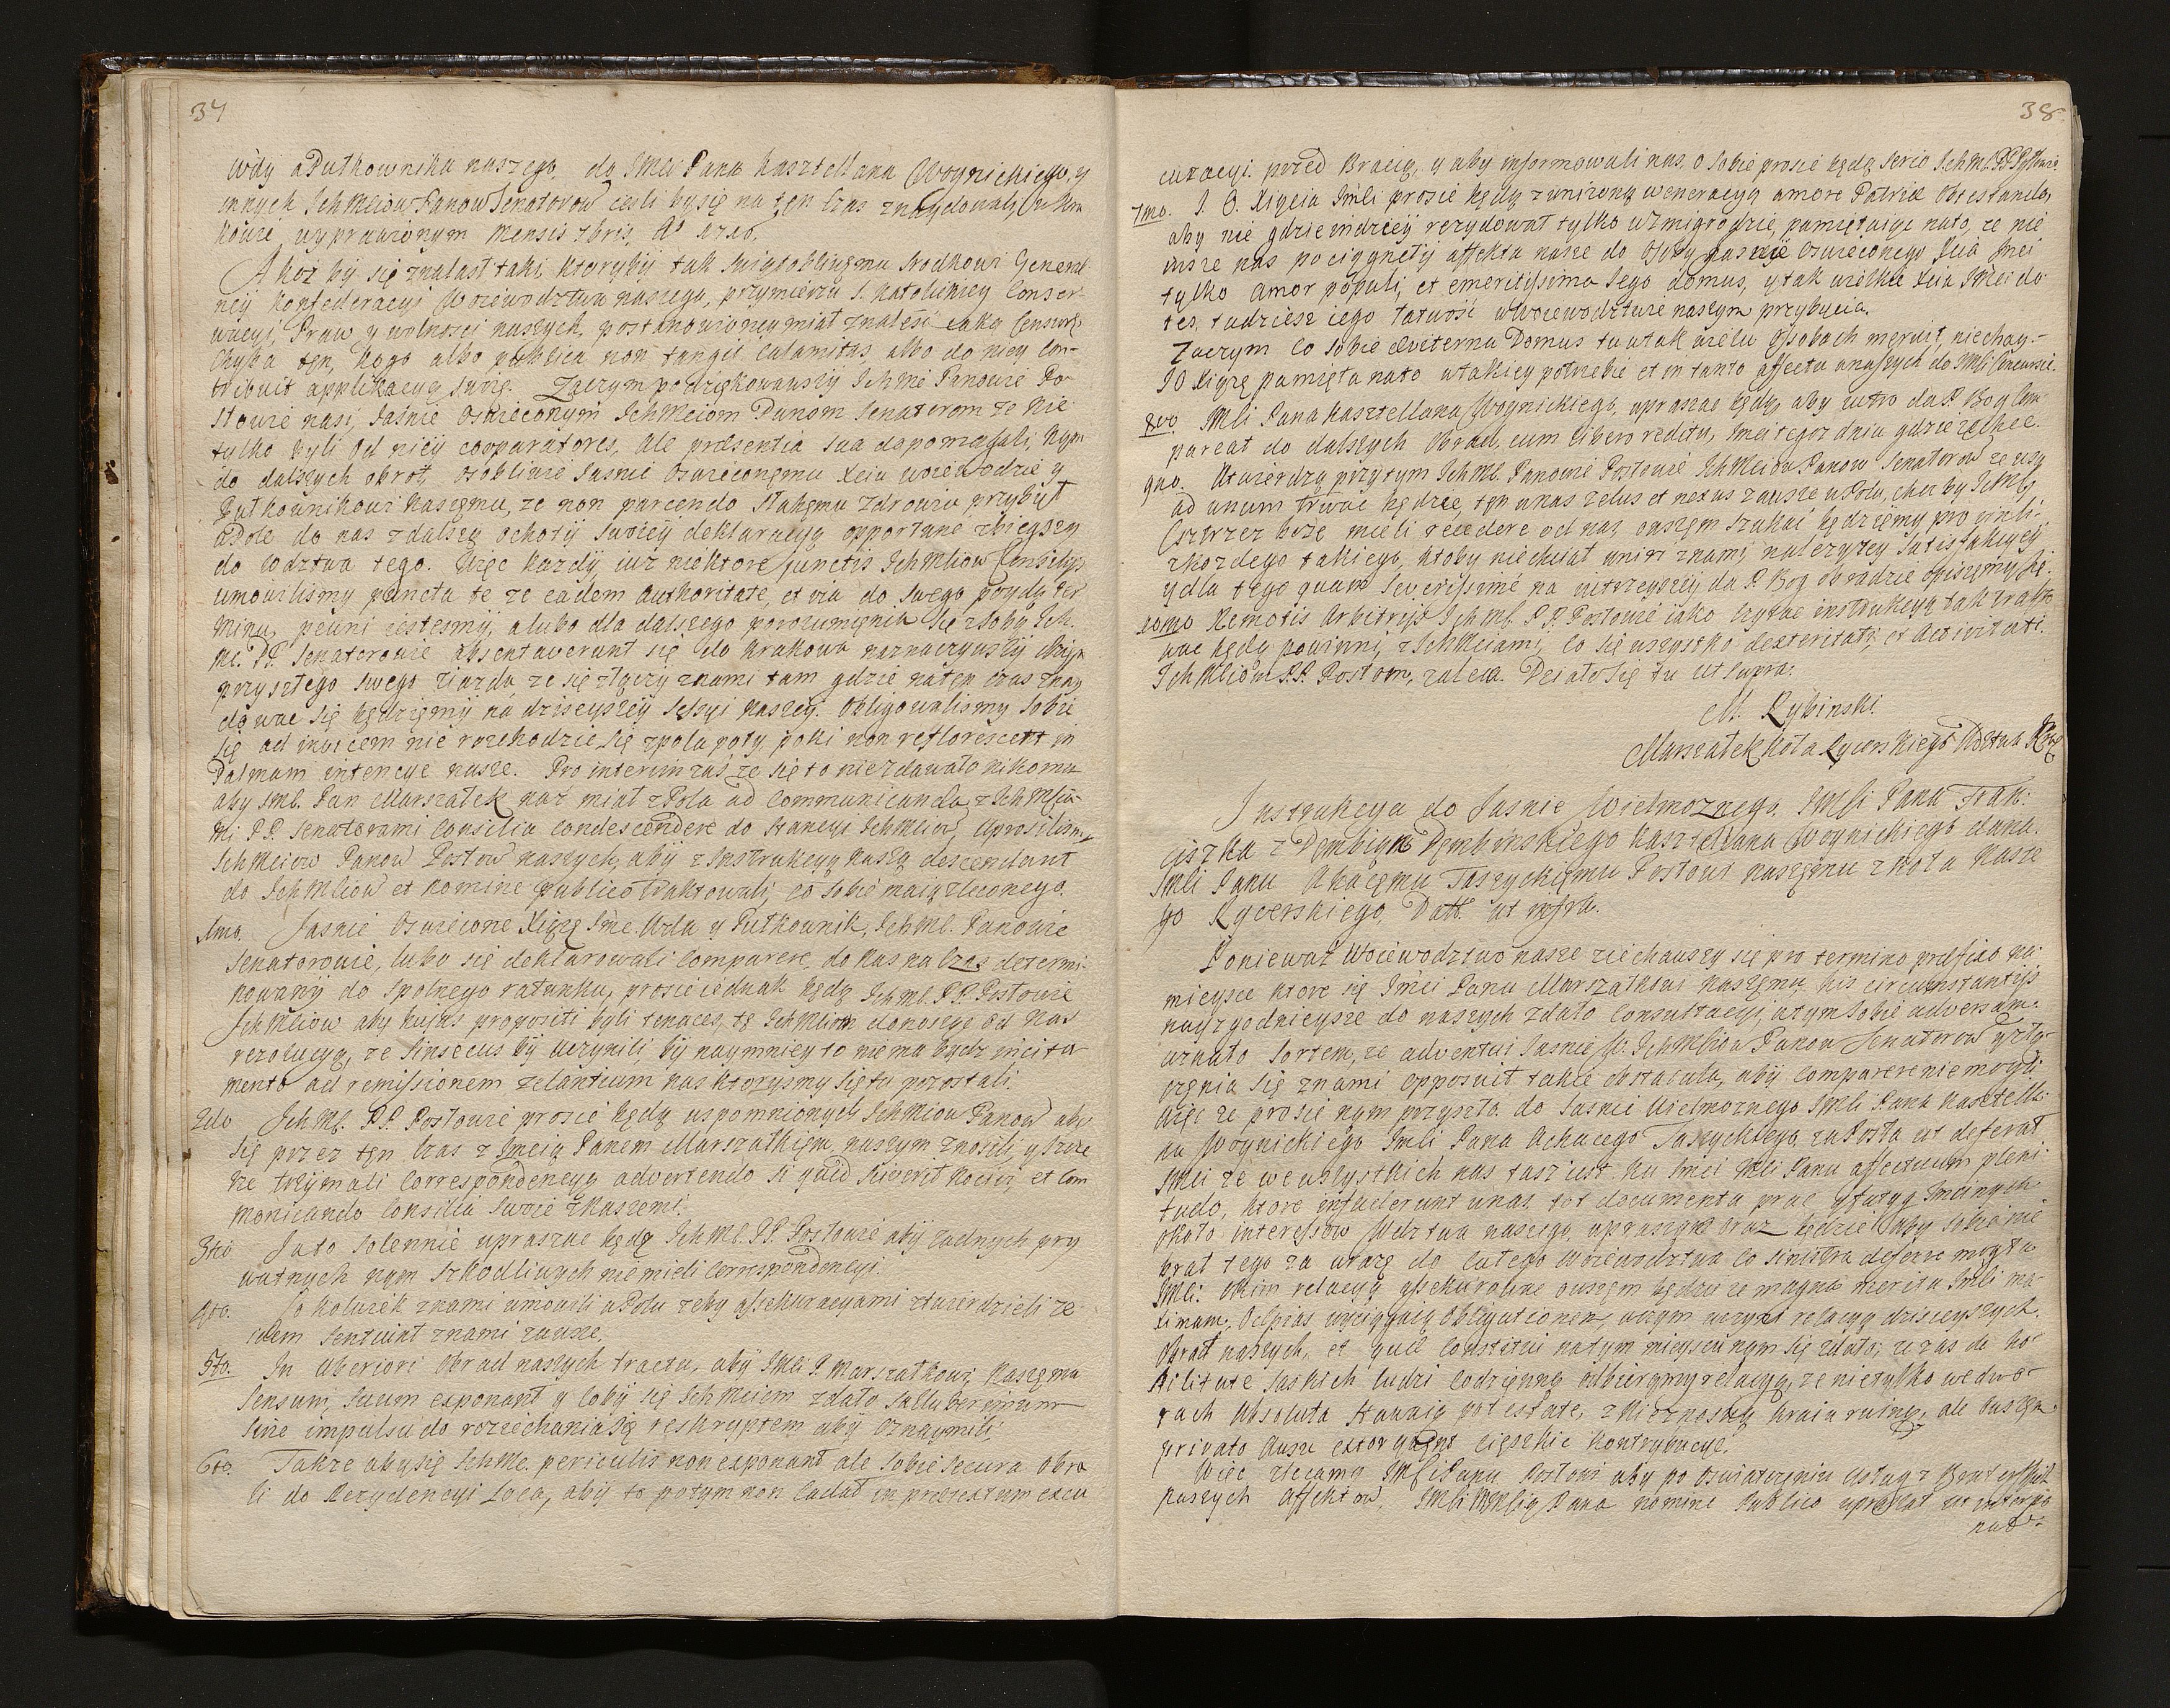 37
wdy a Pułkownika naszego, do JMci Pana Kasztellana Woynickiego, y
innych IchMciow Panow Senatorow iesli by się na ten czas znaydowali w Kra
kowie, wyprawionym Mensis 7bris, A° 1716.
A ktoż by się znalasł taki, ktoryby tak swiętobliwemu srodkowi General
ney Konfederacyi Woiewodztwa naszego, przymierzu S. Katolickiey Conser-
wacyi, Praw y wolnosci naszych, postanowioney miał znaleść iaką Censurę
Chyba ten, kogo albo publica non tangit calamitas, albo do niey con-
tribuit applikacyą swoię. Zaczym podziękowawszy Ichmc Panowie Po-
słowie nasi, Jasnie Oswieconym IchMciom Panom Senatorom że nie
tylko byli od niey cooparatores, ale praesentia sua dopomagali, nam
do dalszych obrot, osobliwie Jasnie Oswieconemu Xciu Woiewodzie y
Pułkownikowi naszemu, że non parcendo słabemu zdrowiu przybył
w Pole do nas z dalszą ochoty swoiey deklaracyą opportune zbieyszy
do Wodztwa tego. Więc każdy iuż niektore junctis IchMciow Consilijs
umowilismy puncta te że eadem authoritate, et via do swego poydą ter
minu, pewni iestesmy, a lubo dla dalszego porozumienia się z sobą Ich.
Mc. PP. Senatorowie absentaverunt się do Krakowa naznaczywszy dzień
przyszłego swego ziazdu, że się złączą z nami tam gdzie na ten czas znay
dować się będziemy na dzisieyszey Sessyi naszey. Obligowalismy sobie
się ad invicem nie rozchodzić się z pola poty, poki non reflorescent in
Palmam intencye nasze. Pro interim zaś że się to nie zdawało nikomu
aby JMc. Pan Marszałek nasz miał z Pola ad communicanda z IchMcia-
mi PP. Senatorami Consilia condescendere do stancyi IchMciow, uprosilismy
IchMciow Panow Posłow naszych, aby z Instrukcyą naszą descendant
do IchMciow et nomine publico traktowali, co sobie maią zleconego.
1mo. Jasnie Oswiecone Xiążę Jmc. Wda y Pułkownik, IchMc. Panowie
Senatorowie, lubo się deklarowali comparere do nas na Czas determi-
nowany do spolnego ratunku, prosić iednak będą IchMc. PP. Posłowie
IchMciow aby hujus propositi byli tenaces, tę IchMciom donosząc od nas
rezolucyą, że si insecus by uczynili by naymniey to nie ma bydz incita
mento ad remissionem zelantium nas ktorzysmy się tu pozostali.
2do IchMc. PP. Posłowie prosić będą wspomnionych IchMciow Panow aby
się przez ten Czas z Jmcią Panem Marszałkiem naszym znosili, y szcze
rze trzymali Correspondencyą advertendo si quid sciverit nocivi, et com
monicando Consilia swoie z naszemi.
3tio Jato solennie upraszać będą IchMc. PP. Posłowie aby żadnych pry
watnych nam szkodliwych nie mieli Correspondencyi.
4to. Co kolwiek z nami umowili w Polu żeby assekuracyami ztwierdzieli że
idem sentiunt z nami zawsze.
5to. In uberiori obrad naszych tractu, aby JMci P. Marszałkowi naszemu
sensum suum exponant y coby się IchMciom zdało saluberrimum
sine impulsu do rozciechania się reskryptem aby oznaymili.
6to. Także aby się IchMc. periculis non exponant ale sobie secura obra
li do Rezydencyi Loca, aby to potym non cadat in praetextum excu
38
cuzacyi przed Bracią, y aby informowali nas, o sobie prosić będą serio IchMc. PP. Posłowie.
7mo. J. O. Xięcia Jmci prosić będą z uniżoną weneracyą amore Patriae obtestando,
aby nie gdzie indziey rezydował tylko w Zmigrodzie, pamiętaiąc na to, że nie
insze nas pociągnęły affekta nasze do Osoby naszeie Oswieconego Xcia Jmci
tylko amor populi, et emeritissima Jego domus, y tak wielkie Xcia JMci do
tes. tudziesz iego łatwość w Woiewodztwie naszym przybycia.
Zaczym co sobie aeviterna Domus ta w tak wielu Osobach meruit, niechay
JO Xiążę pamięta na to w takiey potrzebie et in tanto affectu a naszych do JMci concursie.
8vo JMci Pana Kasztellana Woynickiego, upraszać będą, aby iutro da P. Bog com-
pareat do dalszych Obrad, cum libero reditu, Jmci tegoż dnia gdzie zechce.
9no. Utwierdzą przytym IchMc. Panowie Posłowie IchMciow Panow Senatorow że usq
ad unum trwać będzie ten u nas zelus et nexus zawsze w Polu, choć by IchMc
Czstrzeż Boże mieli recedere od nas owszem szukać będziemy pro vindi-
z każdego takiego, ktoby nie chciał uniri z nami, należytey satisfakcyey
y dla tego quam severissime na iutrzeyszey da P. Bog obradzie opiszemy się.
10mo Remotis Arbitrijs IchMc. PP. Posłowie iako czytać instrukcyą tak trakto
wać będą powinni z IchMciami, co się wszystko dexteritati, et activitati
IchMciow P.P. Posłom, zaleca. Dei ato się tu ut supra.
M. Rybinski
Marszałek Koła Rycerskiego Wdztwa Kra
Instrukcya do Jasnie Wielmożnego JMci Pana Fran:
ciszka z Dembian Dembinskiego Kasztellana Woynickiego dana
JMci Panu Akacemu Taszyckiemu Posłowi naszemu z koła nasze
go Rycerskiego, Datt. ut supra.
Ponieważ Woiewodztwo nasze ziechawszy się pro termino praefixo na
mieysce ktore się Jmci Panu Marszałkowi naszemu his circumstantijs
nayzgodnieysze do naszych zdało Consultacyi, a tym sobie adversam
uznało sortem, że adventui Jasnie W. IchMciow Panow Senatorow y złą-
czenia się z nami opposuit takie obstacula, aby comparere nie mogli
więc że prosić nam przyszło do Jasnie Wielmożnego JMci Pana Kasztella-
na Woynickiego JMci Pana Achacego Taszyckiego, za Posła ut deferat
JMci że we wszystkich nas tasz iest ku Jmci JMci Panu affectuum pleni-
tudo, ktore infuderunt w nas tot documenta prac y fatyg Jmcinych
około interessow Wdztwa naszego, upraszane oraz będzie aby sobie nie
brał tego za urazę do całego Woiewodztwa co sinistra deferre mogła
JMci. Nim relacyą assekurowane owszem będzie że magna merita JMci ma-
ximam Ociplas wyciągaią obligationem, w czym uczyni relacyą dzisieyszych
Obrad naszych, et quid constitui na tym mieyscu nam się zdało; że zaś de ho-
stilitate Saskich ludzi codzienną odbieramy relacyą, że nie tylko we dwo-
rach absoluta stawaią potestate, z nieznośną kraiu ruiną, ale owszem
privato ausu extorquent cięszkie kontrybucye.
Więc zlecamy JMci Panu Posłowi aby po oswiadczeniu usług z
naszych affektow, JMci Pana nomine publico upraszał ut interpo
nat: